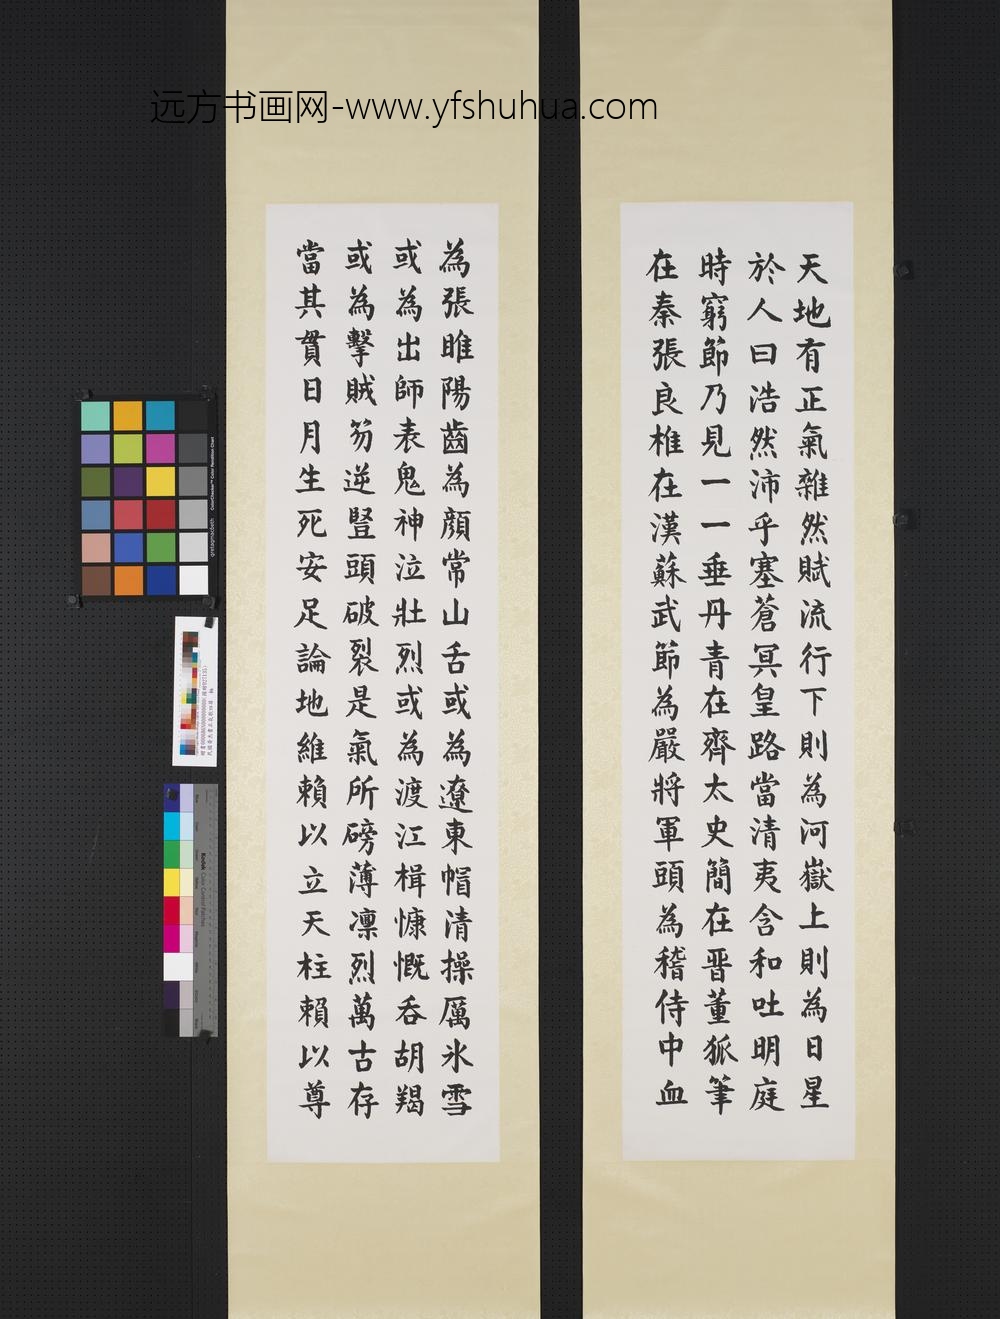 远方书画网-www.yfshuhua.com
天地有正氣雜然賦流行下則為河嶽上則為日星
於人曰浩然沛乎塞蒼冥皇路當清夷含和吐明庭
時窮節乃見一一垂丹青在齊太史簡在晉董狐筆
在秦張良椎在漢蘇武節為嚴將軍頭為嵇侍中血
為張睢陽齒為顏常山舌或為遼東帽清操厲氷雪
或為出師表鬼神泣壯烈或為渡江楫慷慨吞胡羯
或為擊賊笏逆豎頭破裂是氣所磅薄凛烈萬古存
當其貫日月生死安足論地維賴以立天柱賴以尊